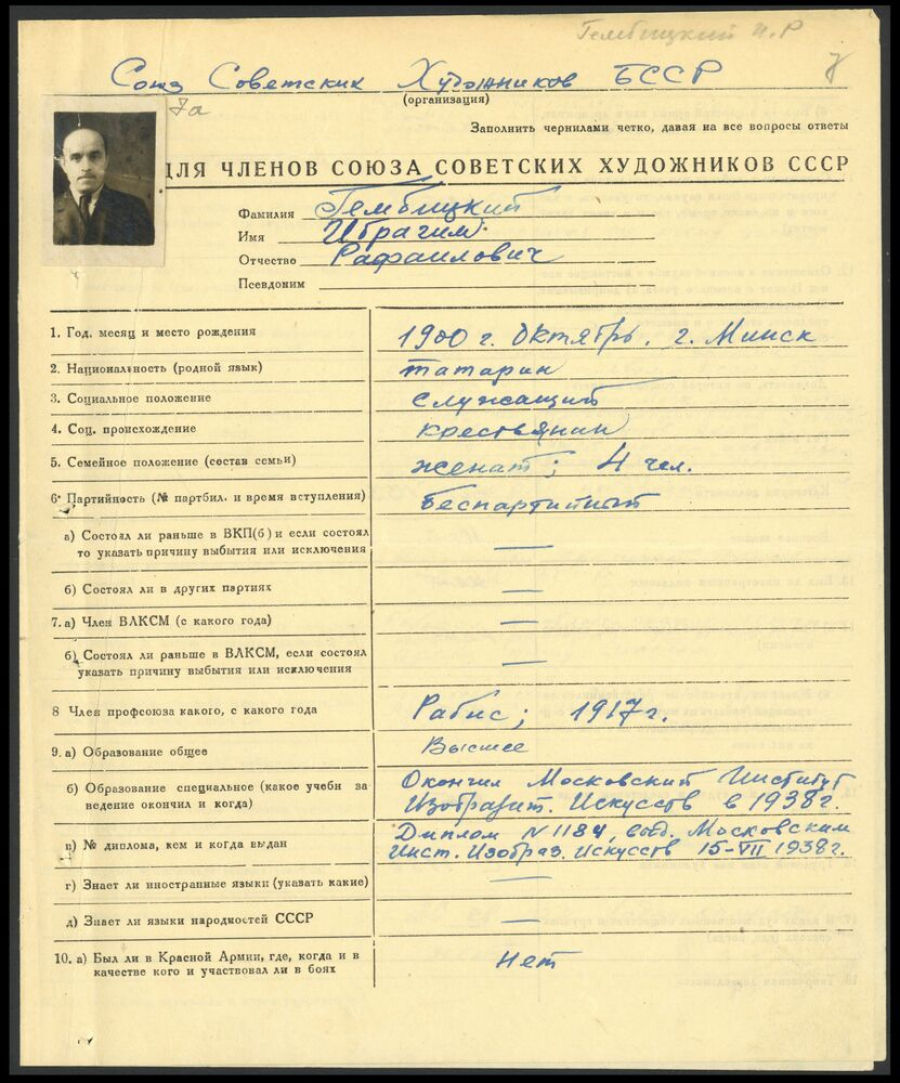 Гембицкий И.Р
7
Союз Советских Художников БССР
(организация)
7а
Заполнить чернилами четко, давая на все вопросы ответы
ДЛЯ ЧЛЕНОВ СОЮЗА СОВЕТСКИХ ХУДОЖНИКОВ СССР
Фамилия Гембицкий
Имя Ибрагим
Отчество Рафаилович
Псевдоним
1. Год, месяц и место рождения 1900 г. Октябрь. г. Минск
2. Национальность (родной язык) татарин
3. Социальное положение служащий
4. Соц. происхождение крестьянин
5. Семейное положение (состав семьи) женат; 4 чел.
6. Партийность (№ партбил. и время вступления) беспартийный
а) Состоял ли раньше в ВКП(б) и если состоял
то указать причину выбытия или исключения —
б) Состоял ли в других партиях —
7. а) Член ВЛКСМ (с какого года) —
б) Состоял ли раньше в ВЛКСМ, если состоял
указать причину выбытия или исключения —
8 Член профсоюза какого, с какого года Рабис; 1917 г.
9. а) Образование общее Высшее
б) Образование специальное (какое учебн за
ведение окончил и когда)
Окончил Московский Институт
Изобразит. Искусств в 1938 г.
в) № диплома, кем и когда выдан
Диплом N 1184, выд. Московским
Инст. Изобраз. Искусств 15-VII 1938 г.
г) Знает ли иностранные языки (указать какие) —
д) Знает ли языки народностей СССР —
10. а) Был ли в Красной Армии, где, когда и в
качестве кого и участвовал ли в боях
Нет